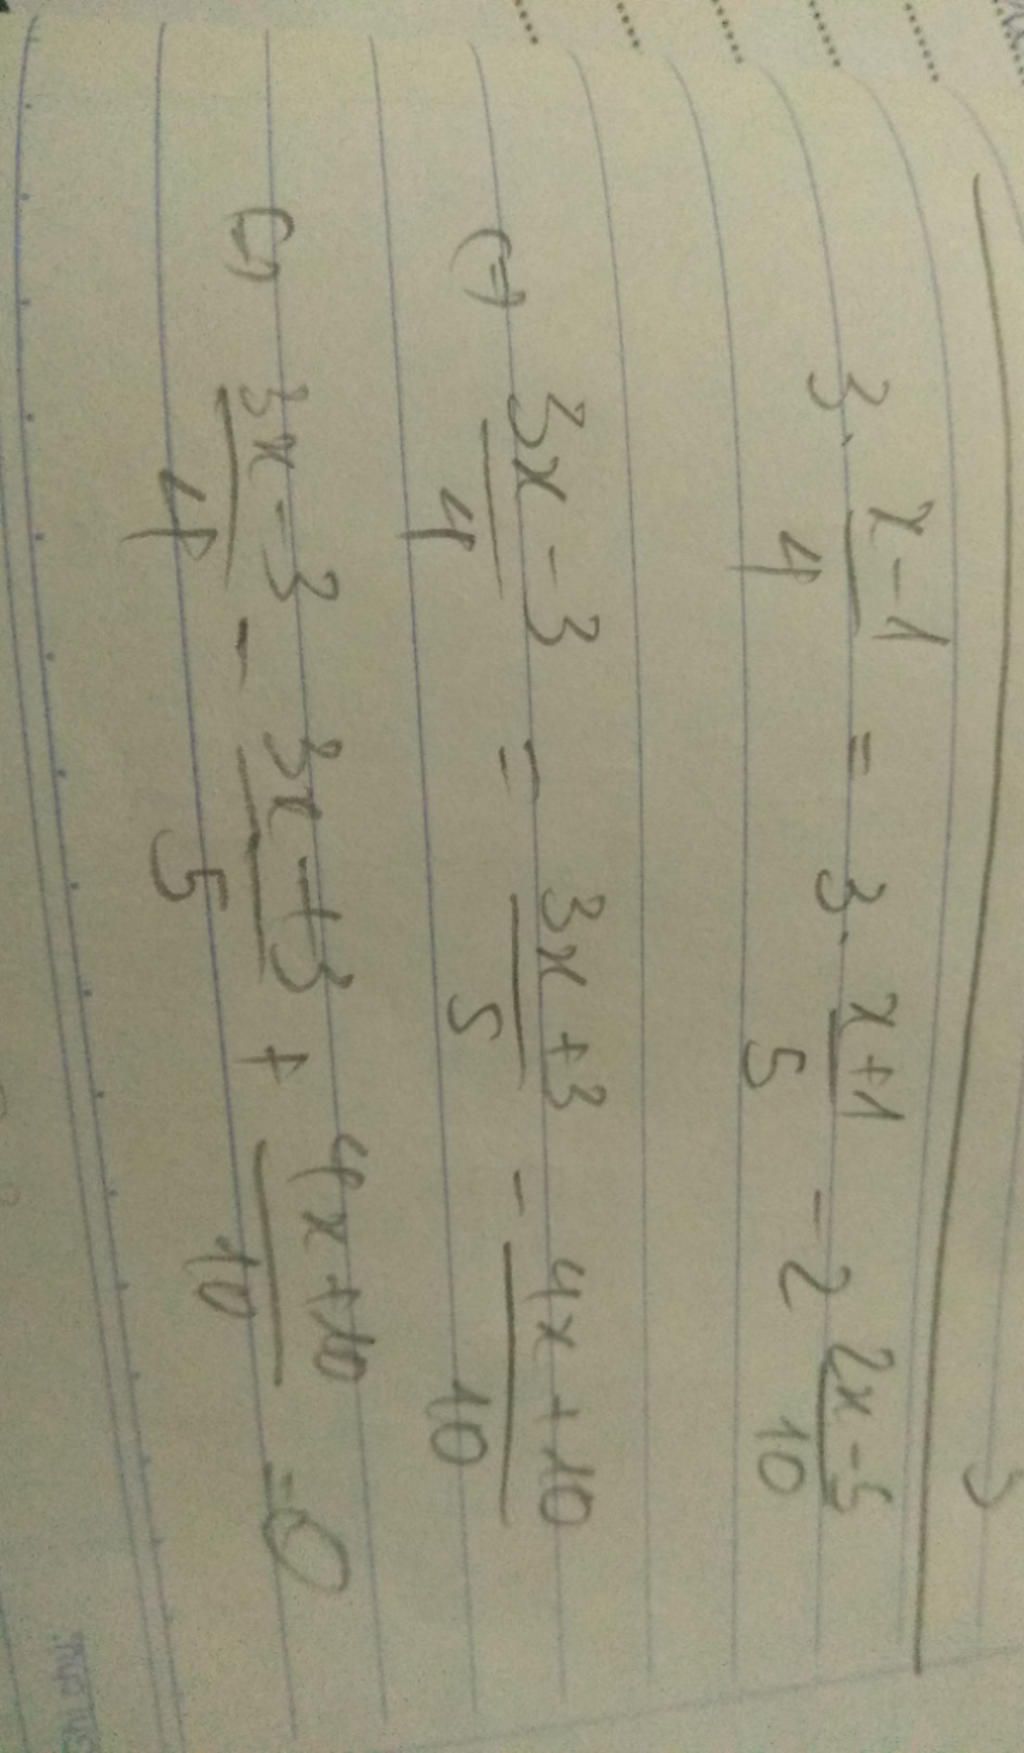 3. x-1/4 = 3. x+1/5 - 2 2x-5/10
(=) 3x-3/4 = 3x+3/5 - 4x+10/10
(=) 3x-3/4 - 3x+3/5 + 4x+10/10 = 0